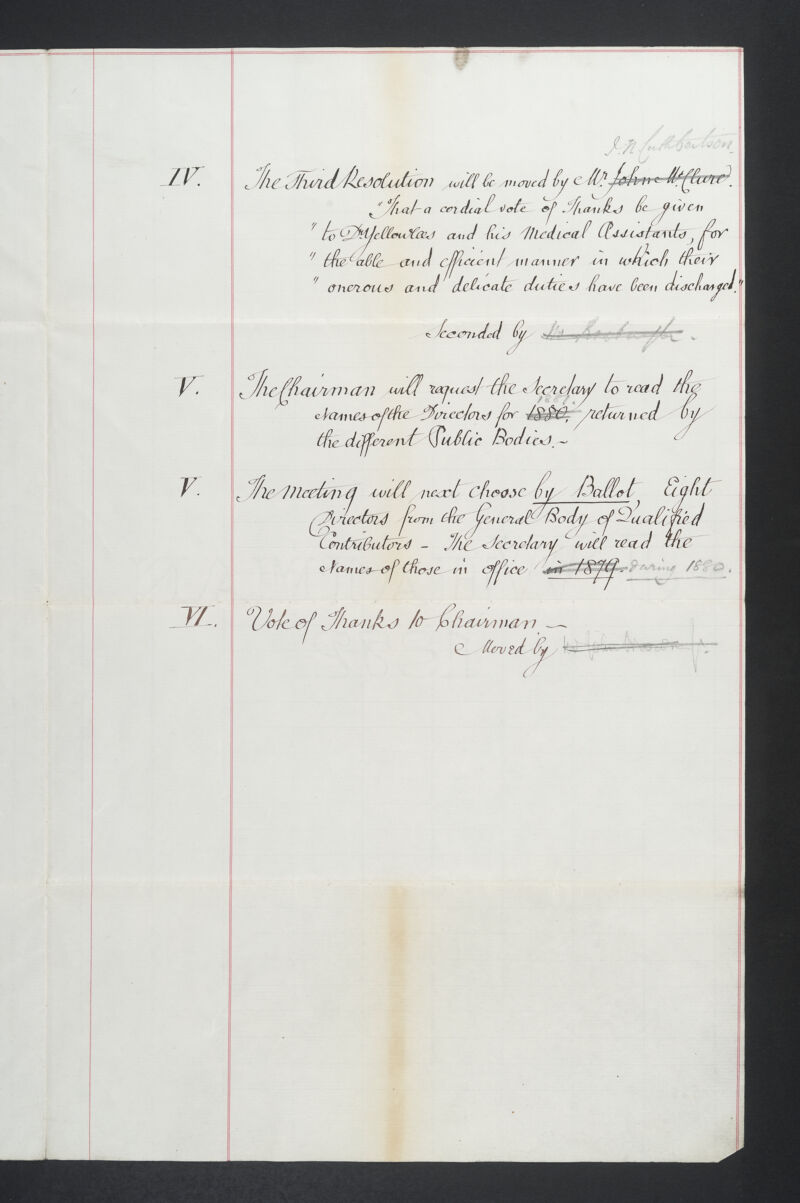 J. N. Cuthbertson.
IV. The Third Resolution will be moved by Mr. John McClure.
"That a cordial vote of Thanks be given
" to Dr. Yellowlees and his Medical Assistants, for
" the able and efficient manner in which their
" onerous and delicate duties have been discharged."
Seconded by Mr
V. The Chairman will request the Secretary to read the
1881.
Names of the Directors for 1880, returned by
the different Public Bodies. –
V. The Meeting will next choose by Ballot, Eight
Directors from the General Body of Qualified
Contributors – The Secretary will read the
Names of those in office in 1879. during 1880.
VI. Vote of Thanks to Chairman –
Moved by Mr John